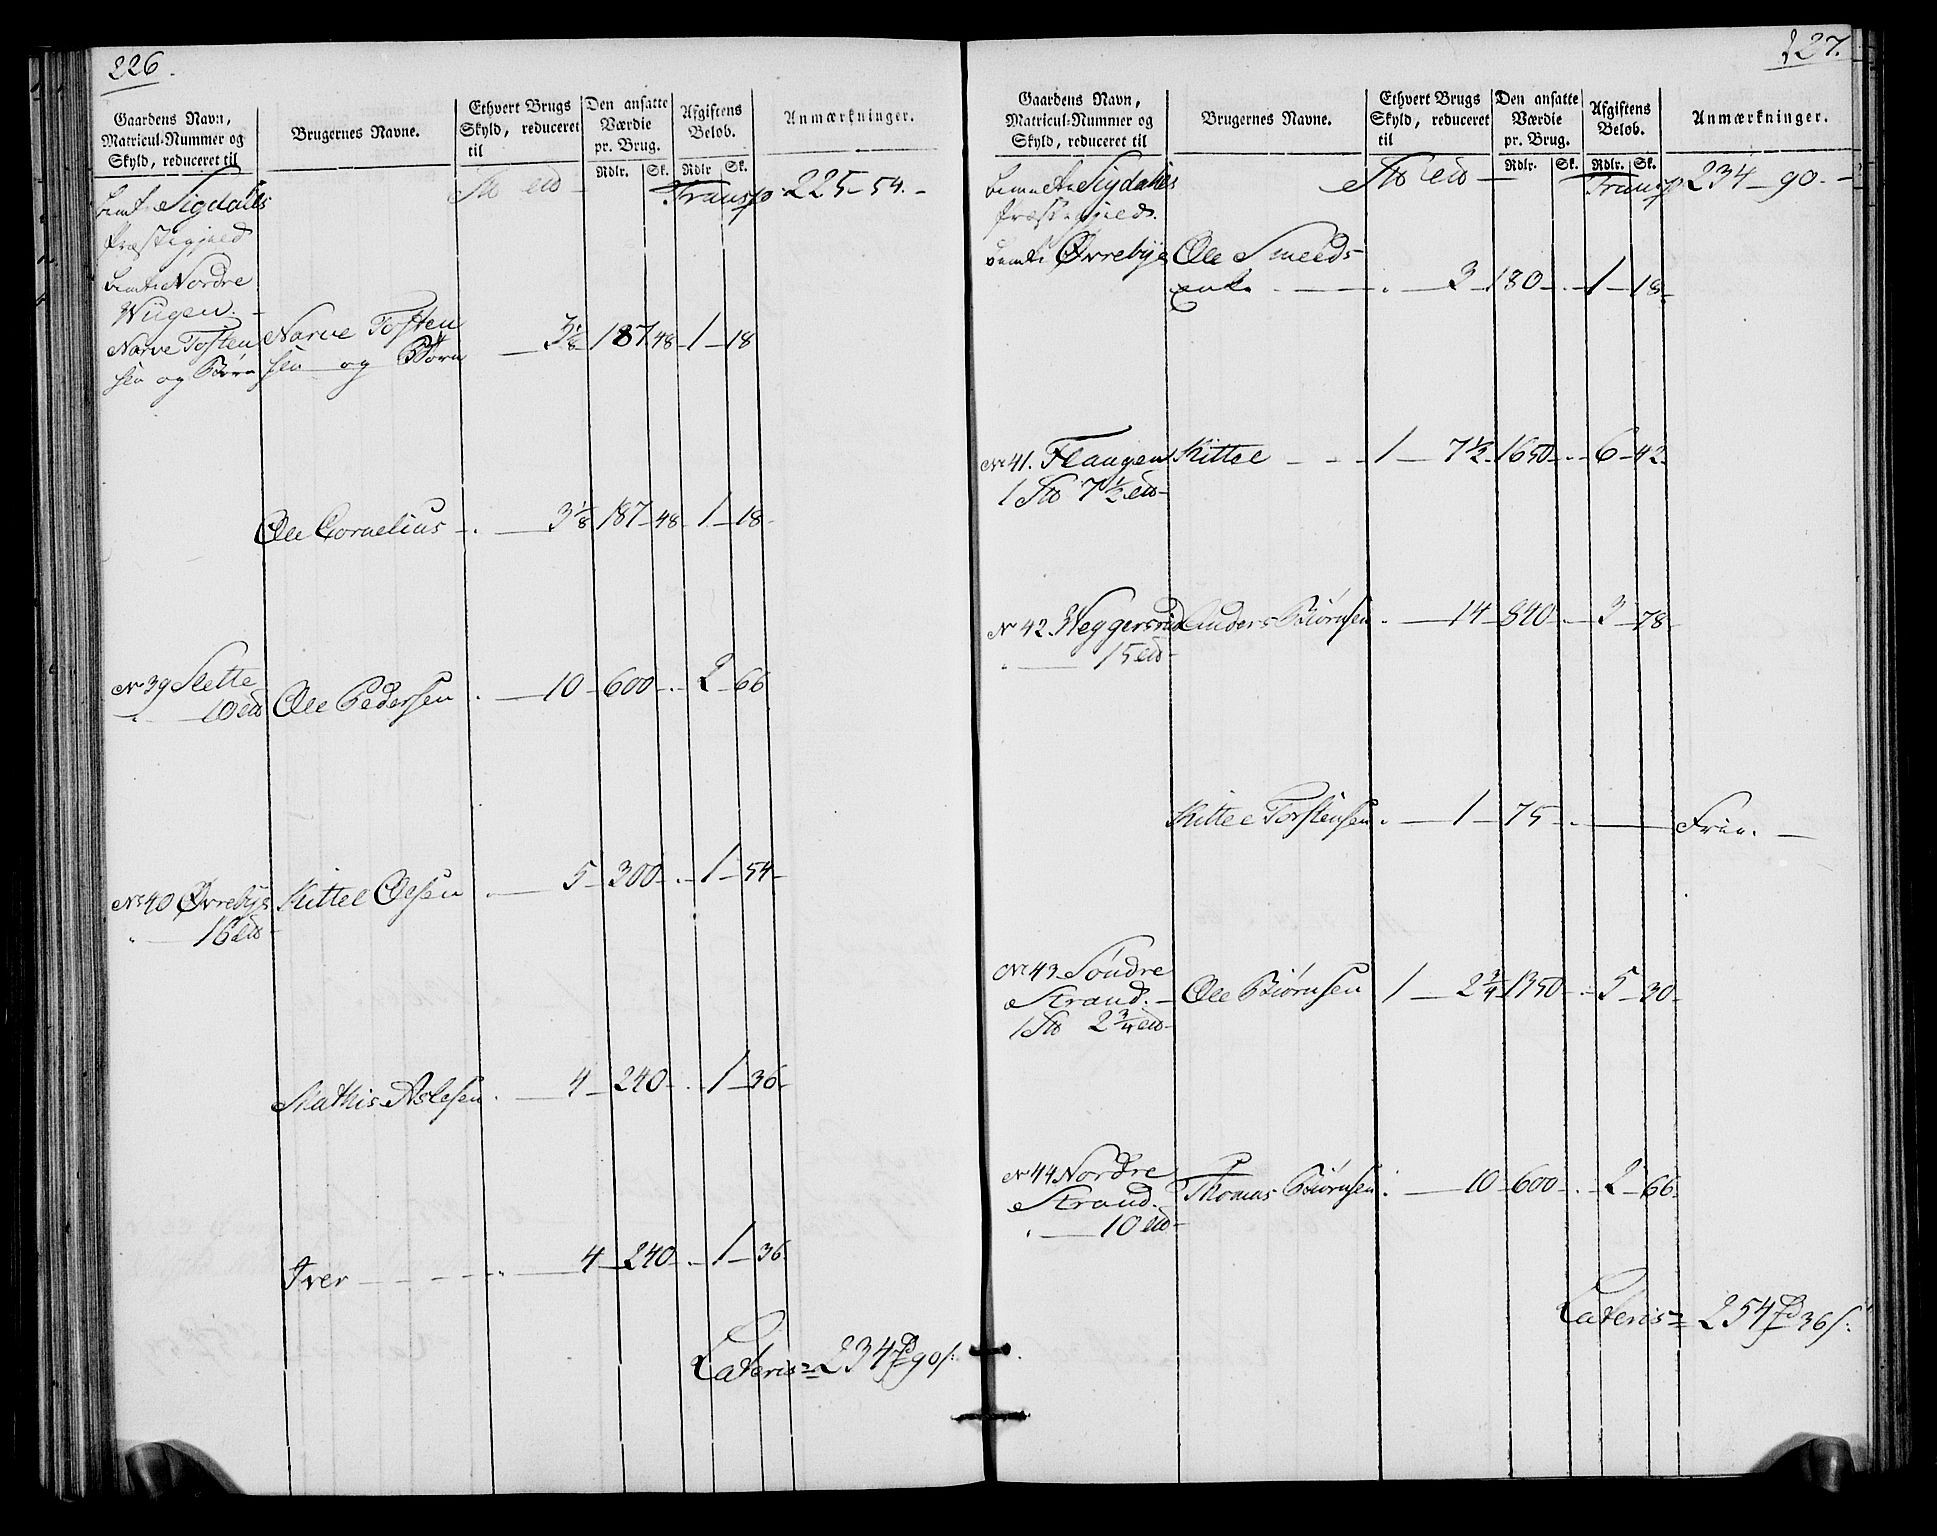 226.
Gaardens Navn, Matricul-Nummer og Skyld, reduceret til | Brugernes Navne. | Ethvert Brugs Skyld, reduceret til | Den ansatte Værdie pr. Brug. Rdlr. Sk. | Afgiftens Beløb. Rdlr Sk. | Anmærkninger.
Transp. 225 – 54. –
Sigdahls
Præstegjeld
Nordre
Wiigen. –
Narve Tosten Narve Tosten
sen og Børn sen og Børn – 3 1/8 – 187 – 48 – 1 – 18
Ole Cornelius – . – 3 1/8 – 187 – 48 – 1 – 18 –
No 39 Slette
10 Ole Pedersen . – 10 – 600 – . – 2 – 66
No 40 Øvrebye Kittel Olsen . – 5 – 300 – . – 1 – 54 –
16
Mathis Aslesen . – 4 – 240 – . – 1 – 36 –
Iver – – – – . – 4 – 240 – . – 1 – 36
Lateris = 234 90 s:
227.
Gaardens Navn, Matricul-Nummer og Skyld, reduceret til | Brugernes Navne. | Ethvert Brugs Skyld, reduceret til | Den ansatte Værdie pr. Brug. Rdlr. Sk. | Afgiftens Beløb. Rdlr. Sk. | Anmærkninger.
Transp. 234 – 90 – –
Sigdahls
Præstegjeld.
Øvrebye Ole Smeds
Enke – – – . – 3 – 180 – . – 1 – 18 –
No 41. Flaagen Kittel – – – 1 – 7 1/2 – 1650 – . – 6 – 42 –
1 7 1/2
No 42. Weggersrud Anders Biørnsen . – 14 – 840 – . – 3 – 78 –
15
Kittel Torstensen . – 1 – 75 – . – – Frie. –
No 43 Söndre
Strand. – Ole Biørnsen 1 – 2 3/4 – 1350 – . – 5 – 30 –
1 2 3/4
No 44 Nordre
Strand. Thomas Biørnsen . – 10 – 600 – . – 2 – 66 –
10
Lateris = 254 36 s: